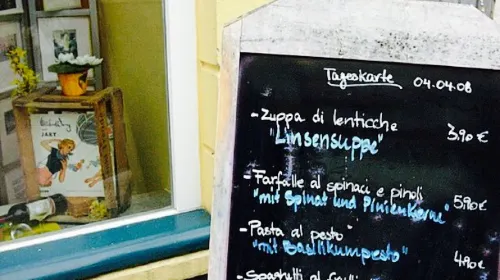 Tageskarte 04.04.08
- Zuppa di lenticche 3,90 €
"Linsensuppe"
- Farfalle al spinaci e pinoli 5,90 €
"mit Spinat und Pinienkerne"
- Pasta al pesto 4,90 €
"mit Basilikumpesto"
- Spaghetti al